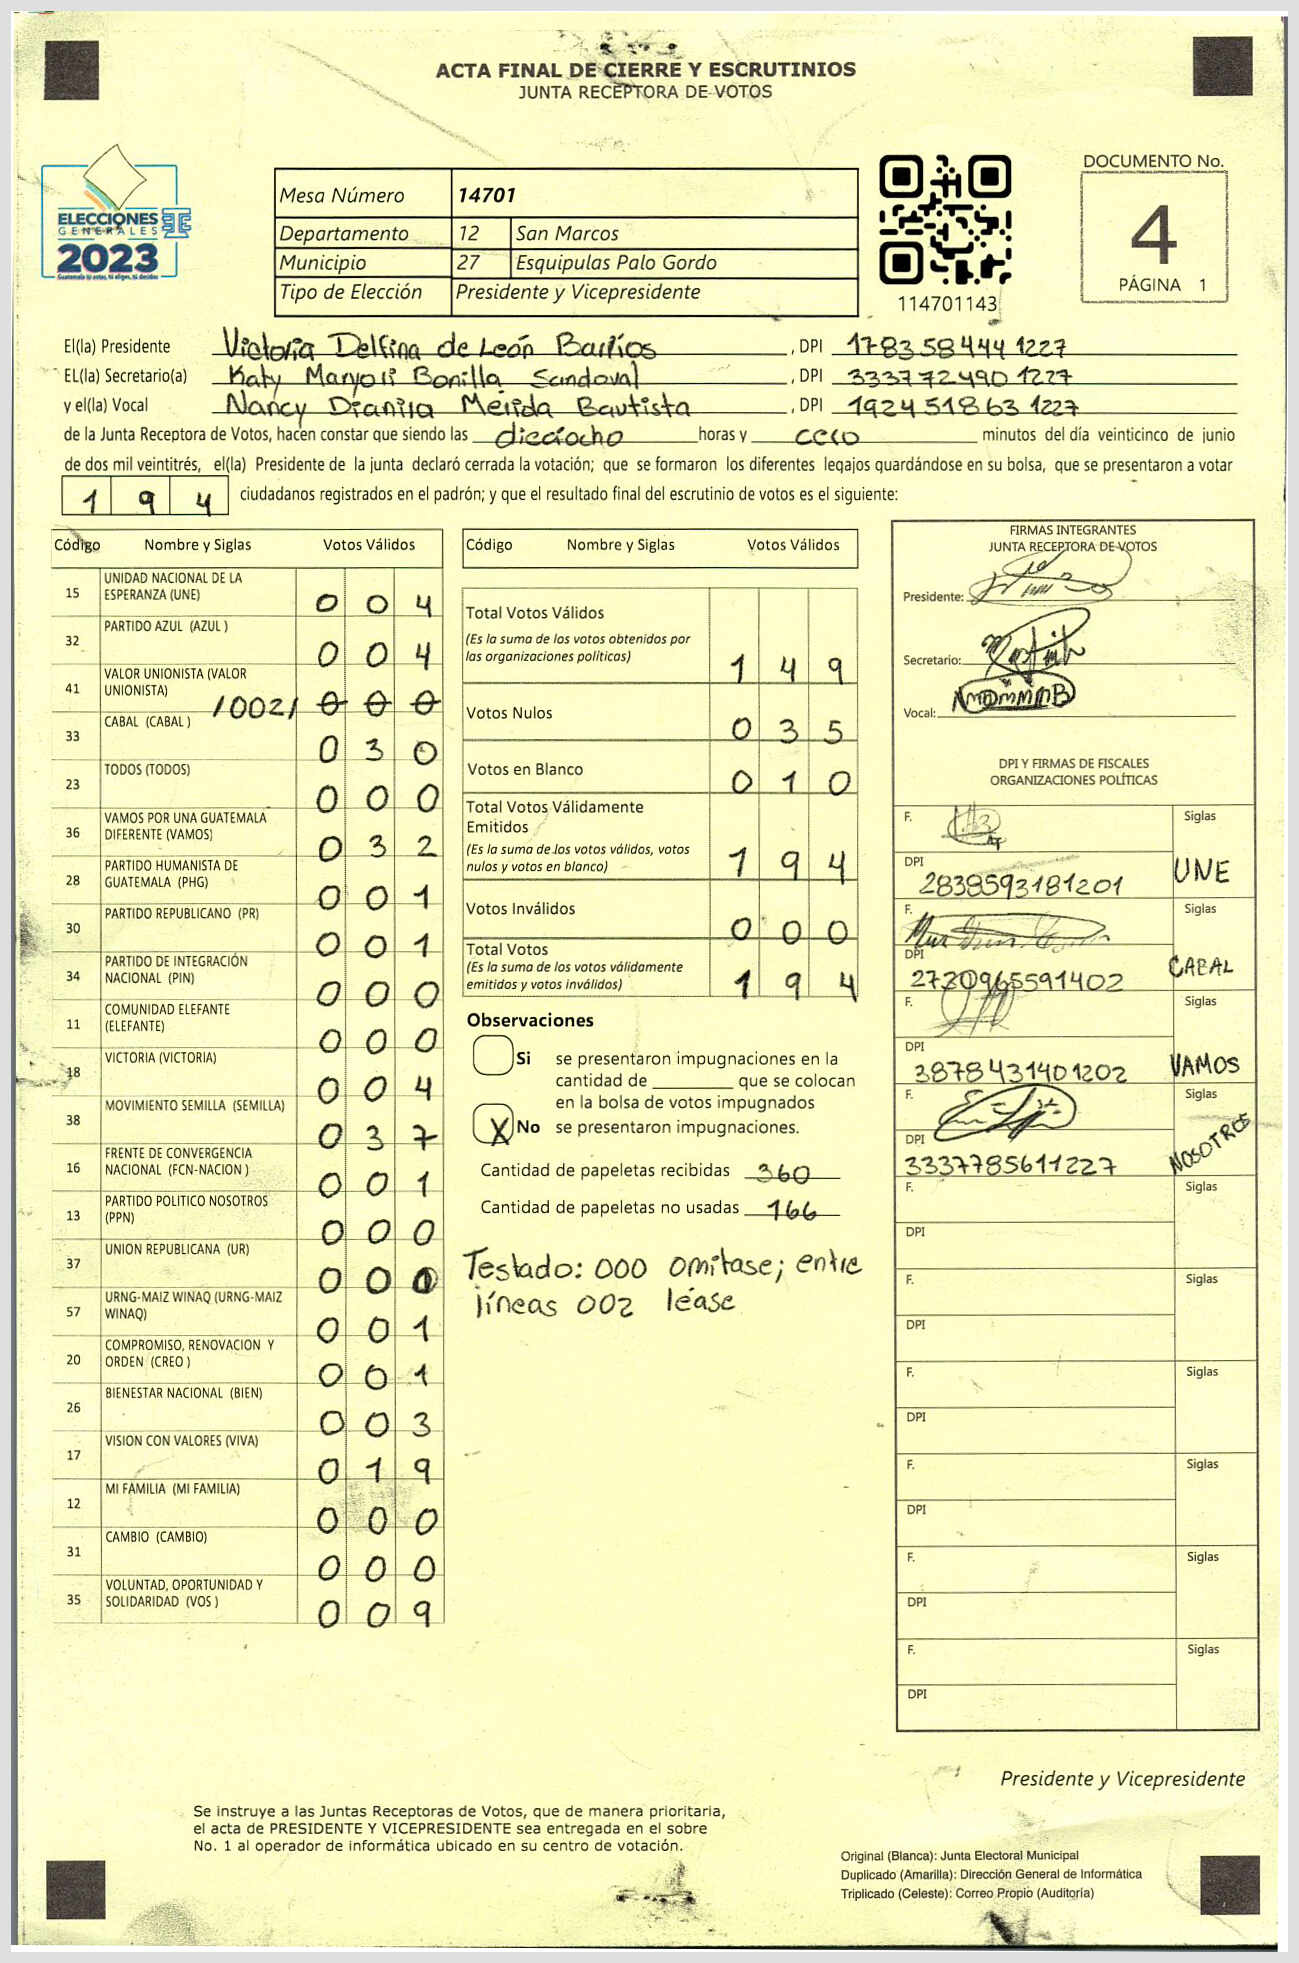 ACTA FINAL DE CIERRE Y ESCRUTINIOS
JUNTA RECEPTORA DE VOTOS
ELECCIONES
GENERALES
2023
Guatemala tú votas, tú eliges, tú decides
Mesa Número 14701
Departamento 12 San Marcos
Municipio 27 Esquipulas Palo Gordo
Tipo de Elección Presidente y Vicepresidente
114701143
DOCUMENTO No.
4
PÁGINA 1
El(la) Presidente Victoria Delfina de León Barrios, DPI 178358444 1227
EL(la) Secretario(a) Katy Maryori Bonilla Sandoval, DPI 333772490 1227
y el(la) Vocal Nancy Dianira Mérida Bautista, DPI 192451863 1227
de la Junta Receptora de Votos, hacen constar que siendo las dieciocho horas y cero minutos del día veinticinco de junio
de dos mil veintitrés, el(la) Presidente de la junta declaró cerrada la votación; que se formaron los diferentes legajos quardándose en su bolsa, que se presentaron a votar
194 ciudadanos registrados en el padrón; y que el resultado final del escrutinio de votos es el siguiente:
Código Nombre y Siglas Votos Válidos
15 UNIDAD NACIONAL DE LA ESPERANZA (UNE) 004
32 PARTIDO AZUL (AZUL ) 004
41 VALOR UNIONISTA (VALOR UNIONISTA) /002/ 000
33 CABAL (CABAL ) 030
23 TODOS (TODOS) 000
36 VAMOS POR UNA GUATEMALA DIFERENTE (VAMOS) 032
28 PARTIDO HUMANISTA DE GUATEMALA (PHG) 001
30 PARTIDO REPUBLICANO (PR) 001
34 PARTIDO DE INTEGRACIÓN NACIONAL (PIN) 000
11 COMUNIDAD ELEFANTE (ELEFANTE) 000
18 VICTORIA (VICTORIA) 004
38 MOVIMIENTO SEMILLA (SEMILLA) 037
16 FRENTE DE CONVERGENCIA NACIONAL (FCN-NACION ) 001
13 PARTIDO POLITICO NOSOTROS (PPN) 000
37 UNION REPUBLICANA (UR) 000
57 URNG-MAIZ WINAQ (URNG-MAIZ WINAQ) 001
20 COMPROMISO, RENOVACION Y ORDEN (CREO ) 001
26 BIENESTAR NACIONAL (BIEN) 003
17 VISION CON VALORES (VIVA) 019
12 MI FAMILIA (MI FAMILIA) 000
31 CAMBIO (CAMBIO) 000
35 VOLUNTAD, OPORTUNIDAD Y SOLIDARIDAD (VOS ) 009
Código Nombre y Siglas Votos Válidos
Total Votos Válidos
(Es la suma de los votos obtenidos por
las organizaciones políticas) 149
Votos Nulos 035
Votos en Blanco 010
Total Votos Válidamente
Emitidos
(Es la suma de los votos válidos, votos
nulos y votos en blanco) 194
Votos Inválidos 000
Total Votos
(Es la suma de los votos válidamente
emitidos y votos inválidos) 194
Observaciones
Si se presentaron impugnaciones en la
cantidad de ________ que se colocan
en la bolsa de votos impugnados
X No se presentaron impugnaciones.
Cantidad de papeletas recibidas 360
Cantidad de papeletas no usadas 166
Testado: 000 omitase; entre
líneas 002 léase
FIRMAS INTEGRANTES
JUNTA RECEPTORA DE VOTOS
Presidente:
Secretario:
Vocal:
DPI Y FIRMAS DE FISCALES
ORGANIZACIONES POLÍTICAS
F. Siglas
DPI 2838593181201 UNE
F. Siglas
DPI 2730965591402 CABAL
F. Siglas
DPI 3878431401202 VAMOS
F. Siglas
DPI 3337785611227 NOSOTROS
F. Siglas
DPI
F. Siglas
DPI
F. Siglas
DPI
F. Siglas
DPI
F. Siglas
DPI
F. Siglas
DPI
Presidente y Vicepresidente
Se instruye a las Juntas Receptoras de Votos, que de manera prioritaria,
el acta de PRESIDENTE Y VICEPRESIDENTE sea entregada en el sobre
No. 1 al operador de informática ubicado en su centro de votación.
Original (Blanca): Junta Electoral Municipal
Duplicado (Amarilla): Dirección General de Informática
Triplicado (Celeste): Correo Propio (Auditoría)